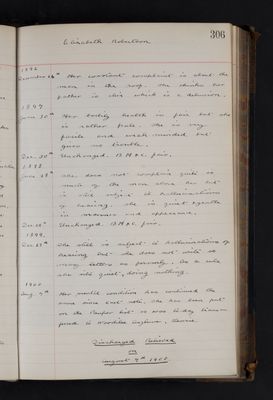 306
Elizabeth Robertson
1896
December 24th Her constant complaint is about the
man on the roof. She thinks her
father is this which is a delusion.
1897
June 30th Her bodily health is fair but she
is rather pale. She is very
facile and weak minded but
gives no trouble.
Dec. 30th Unchanged. B.H &c. fair.
1898
June 28th She does not complain quite so
much of the man above her but
is still subject to hallucinations
of hearing. She is quiet & gentle
in manner and appearance.
Dec. Unchanged. B.H &c. fair.
1899
Dec. She still is subject to hallucinations of
hearing but she does not write so
many letters as formerly. As a rule
she sits quiet, doing nothing.
1900
Aug. 9th Her mental condition has continued the
same since last note. She has been put
on the Pauper list & was to-day trans-
ferred to Woodilee Asylum, Lenzie.
Discharged Relieved
on
August 9th 1900.